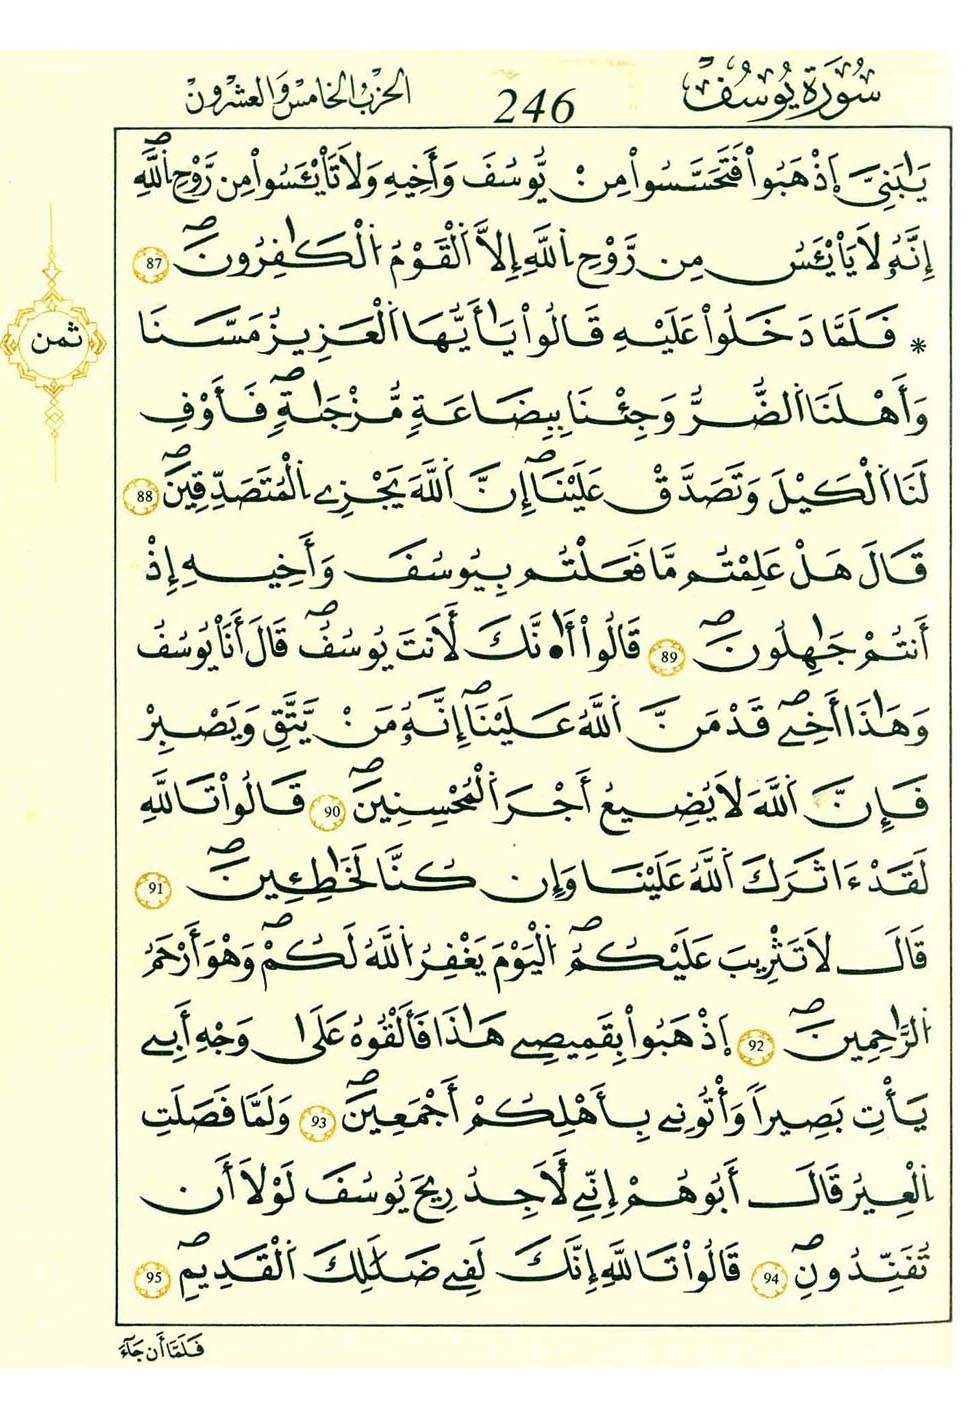 سُورَةُ يُوسُفَ
246
الحِزْبُ الخَامِسُ وَالعِشْرُونَ
يَٰبَنِيَّ اَ۪ذْهَبُواْ فَتَحَسَّسُواْ مِنْ يُّوسُفَ وَأَخِيهِ وَلَا تَاْيْـَٔسُواْ مِن رَّوْحِ اِ۬للَّهِۖ
إِنَّهُۥ لَا يَاْيْـَٔسُ مِن رَّوْحِ اِ۬للَّهِ إِلَّا اَ۬لْقَوْمُ اُ۬لْكَٰفِرُونَۖ 87
* فَلَمَّا دَخَلُواْ عَلَيْهِ قَالُواْ يَٰأَيُّهَا اَ۬لْعَزِيزُ مَسَّنَا
وَأَهْلَنَا اَ۬لضُّرُّ وَجِئْنَا بِبِضَٰعَةٍ مُّزْجَىٰةٍۖ فَأَوْفِ
لَنَا اَ۬لْكَيْلَ وَتَصَدَّقْ عَلَيْنَاۖ إِنَّ اَ۬للَّهَ يَجْزِے اِ۬لْمُتَصَدِّقِينَۖ 88
قَالَ هَلْ عَلِمْتُم مَّا فَعَلْتُم بِيُوسُفَ وَأَخِيهِ إِذْ
أَنتُمْ جَٰهِلُونَۖ 89 قَالُواْ أَا۟نَّكَ لَأَنتَ يُوسُفُۖ قَالَ أَنَا يُوسُفُ
وَهَٰذَا أَخِےۖ قَدْ مَنَّ اَ۬للَّهُ عَلَيْنَاۖ إِنَّهُۥ مَنْ يَّتَّقِ وَيَصْبِرْ
فَإِنَّ اَ۬للَّهَ لَا يُضِيعُ أَجْرَ اَ۬لْمُحْسِنِينَۖ 90 قَالُواْ تَاللَّهِ
لَقَدْ ءَاثَرَكَ اَ۬للَّهُ عَلَيْنَا وَإِن كُنَّا لَخَٰطِـِٕينَۖ 91
قَالَ لَا تَثْرِيبَ عَلَيْكُمُۖ اُ۬لْيَوْمَ يَغْفِرُ اُ۬للَّهُ لَكُمْۖ وَهْوَ أَرْحَمُ
اُ۬لرَّٰحِمِينَۖ 92 اَ۪ذْهَبُواْ بِقَمِيصِے هَٰذَا فَأَلْقُوهُ عَلَىٰ وَجْهِ أَبِے
يَأْتِ بَصِيراً وَأْتُونِے بِأَهْلِكُمْ أَجْمَعِينَۖ 93 وَلَمَّا فَصَلَتِ
اِ۬لْعِيرُ قَالَ أَبُوهُمْ إِنِّے لَأَجِدُ رِيحَ يُوسُفَ لَوْلَا أَن
تُفَنِّدُونِۖ 94 قَالُواْ تَاللَّهِ إِنَّكَ لَفِے ضَلَٰلِكَ اَ۬لْقَدِيمِۖ 95
ثمن
فَلَمَّا أَن جَآءَ